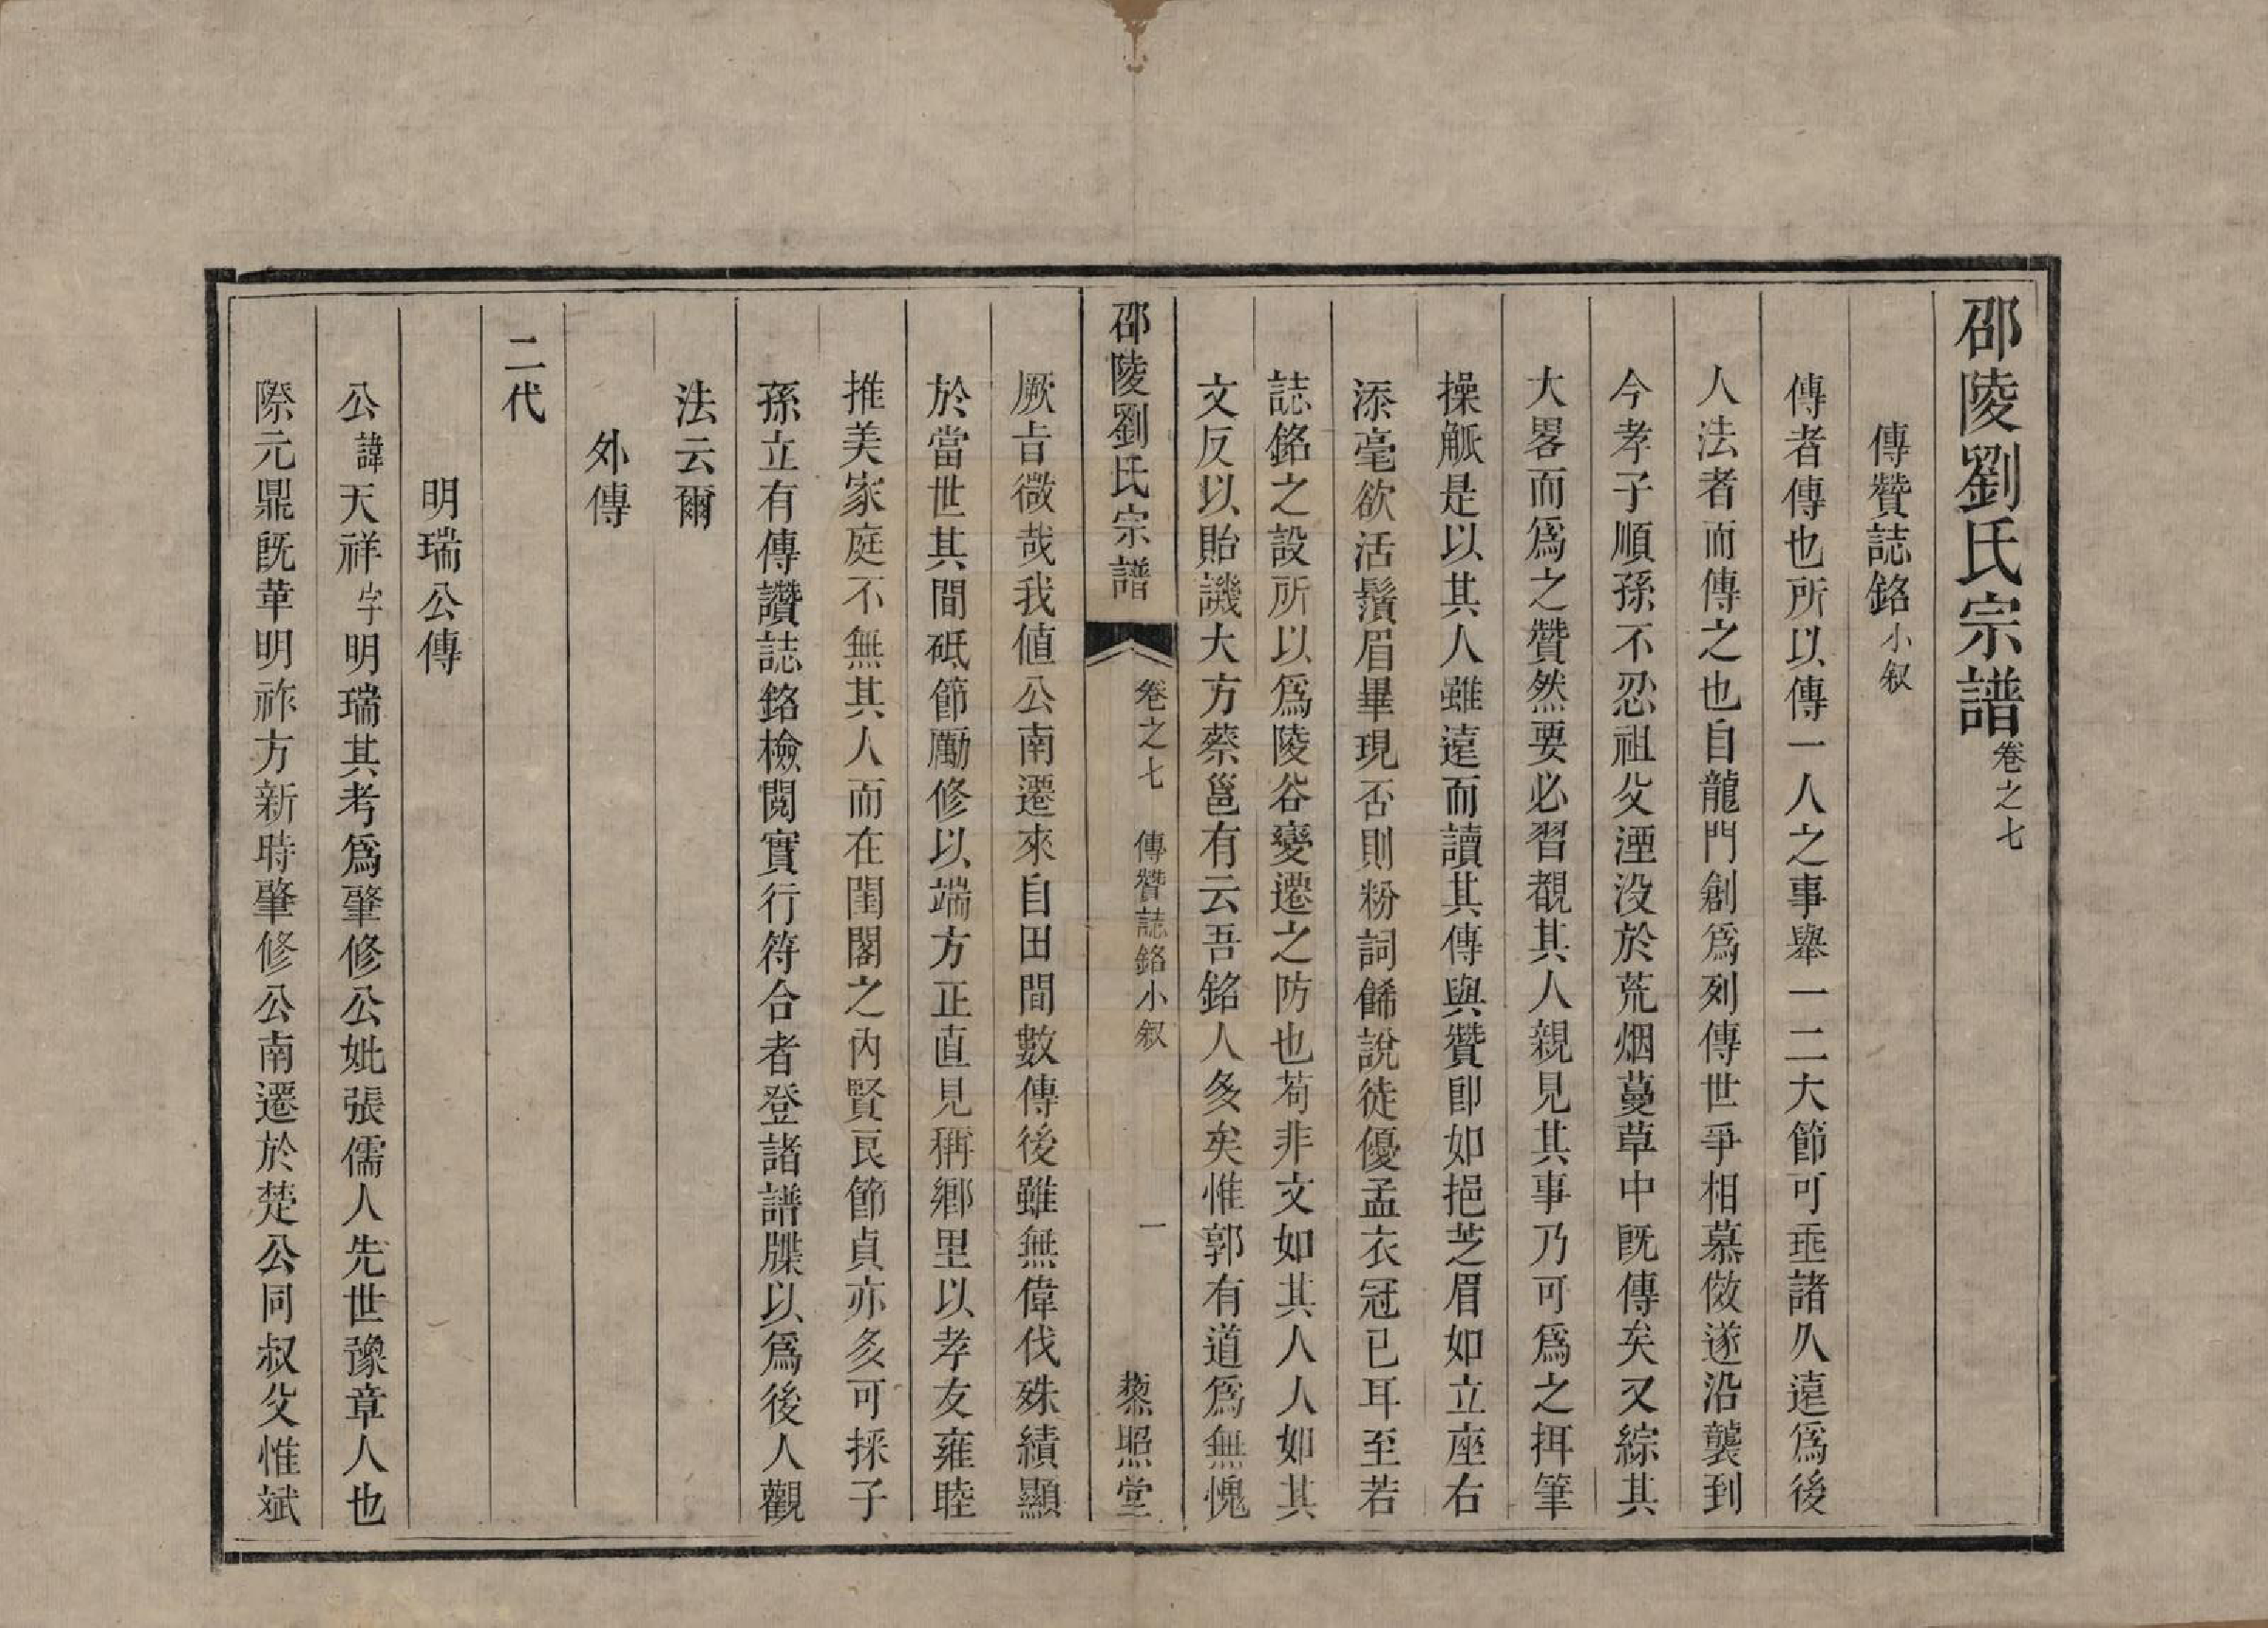 邵陵劉氏宗譜卷之七
傳贊誌銘小叙
傳者傳也所以傳一人之事舉一二大節可垂諸久遠爲後
人法者而傳之也自龍門創爲列傳世爭相慕倣遂沿襲到
今孝子順孫不忍祖父湮没於荒烟蔓草中旣傳矣又綜其
大畧而爲之贊然要必習覩其人親見其事乃可爲之珥筆
操觚是以其人雖遠而讀其傳與贊卽如挹芝眉如立座右
添毫欲活鬚眉畢現否則粉詞餙說徒優孟衣冠已耳至若
誌銘之設所以爲陵谷變遷之防也苟非文如其人人如其
文反以貽譏大方蔡邕有云吾銘人多矣惟郭有道爲無愧
邵陵劉氏宗譜 卷之七 傳贊誌銘小叙 一 藜照堂
厥旨微哉我値公南遷來自田間數傳後雖無偉伐殊績顯
於當世其間砥節勵修以端方正直見稱鄉里以孝友雍睦
推美家庭不無其人而在閨閣之內賢良節貞亦多可採子
孫立有傳讚誌銘檢閱實行符合者登諸譜牒以爲後人觀
法云爾
外傳
二代
明瑞公傳
公諱天祥字明瑞其考爲肇修公妣張儒人先世豫章人也
際元鼎旣革明祚方新時肇修公南遷於楚公同叔父惟斌